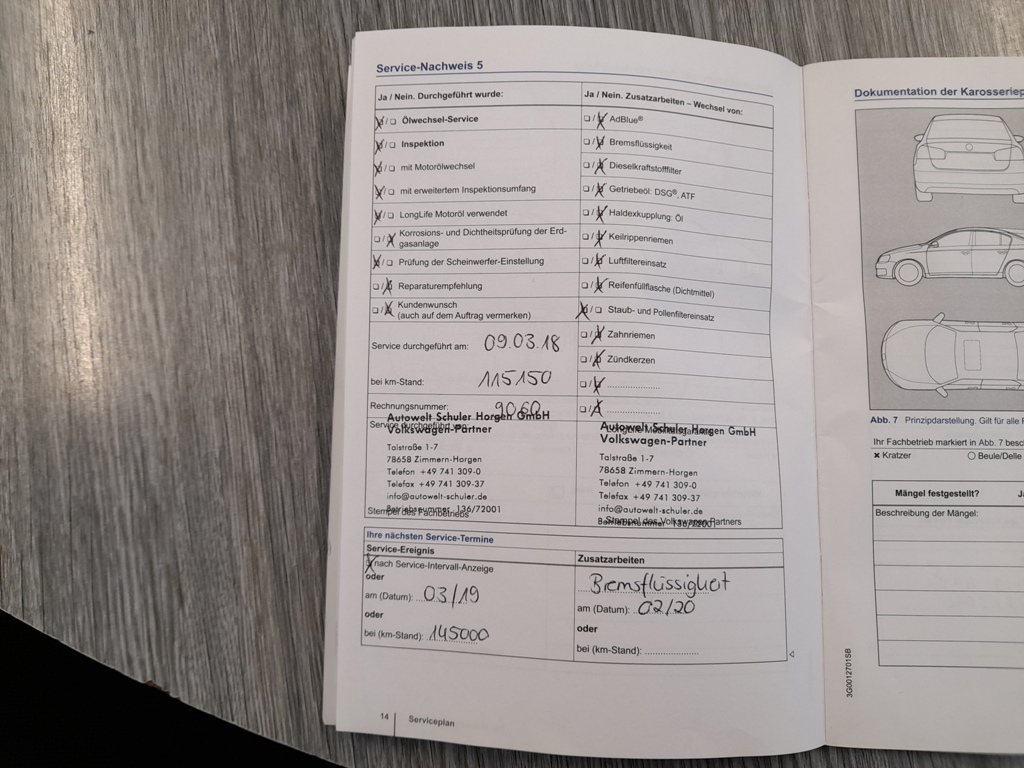 Service-Nachweis 5
Ja / Nein. Durchgeführt wurde:
Ölwechsel-Service
Inspektion
mit Motorölwechsel
mit erweitertem Inspektionsumfang
LongLife Motoröl verwendet
Korrosions- und Dichtheitsprüfung der Erd-
gasanlage
Prüfung der Scheinwerfer-Einstellung
Reparaturempfehlung
Kundenwunsch
(auch auf dem Auftrag vermerken)
Service durchgeführt am: 09.03.18
bei km-Stand: 115150
Rechnungsnummer: 9060
Autowelt Schuler Horgen GmbH
Service durchgeführt von:
Volkswagen-Partner
Talstraße 1-7
78658 Zimmern-Horgen
Telefon +49 741 309-0
Telefax +49 741 309-37
info@autowelt-schuler.de
Betriebsnummer 136/72001
Stempel des Fachbetriebs
Ja / Nein. Zusatzarbeiten – Wechsel von:
AdBlue®
Bremsflüssigkeit
Dieselkraftstofffilter
Getriebeöl: DSG®, ATF
Haldexkupplung: Öl
Keilrippenriemen
Luftfiltereinsatz
Reifenfüllflasche (Dichtmittel)
Staub- und Pollenfiltereinsatz
Zahnriemen
Zündkerzen
Autowelt Schuler Horgen GmbH
Volkswagen-Partner
Talstraße 1-7
78658 Zimmern-Horgen
Telefon +49 741 309-0
Telefax +49 741 309-37
info@autowelt-schuler.de
Betriebsnummer 136/72001
Stempel des Volkswagen Partners
Ihre nächsten Service-Termine
Service-Ereignis
nach Service-Intervall-Anzeige
oder
am (Datum): 03/19
oder
bei (km-Stand): 145000
Zusatzarbeiten
Bremsflüssigkeit
am (Datum): 02/20
oder
bei (km-Stand):
14 Serviceplan
Dokumentation der
Abb. 7 Prinzipdarstellung. Gilt für alle
Ihr Fachbetrieb markiert in Abb. 7
Kratzer Beule/Delle
Mängel festgestellt?
Beschreibung der Mängel:
3G0012701SB